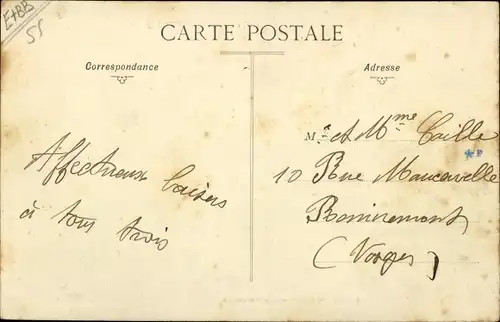 E+BB
55
CARTE POSTALE
Correspondance
Adresse
Affectueux baisers
à tous trois
M. et Mme Caille
10 Rue Maucervelle
Remiremont
(Vosges)